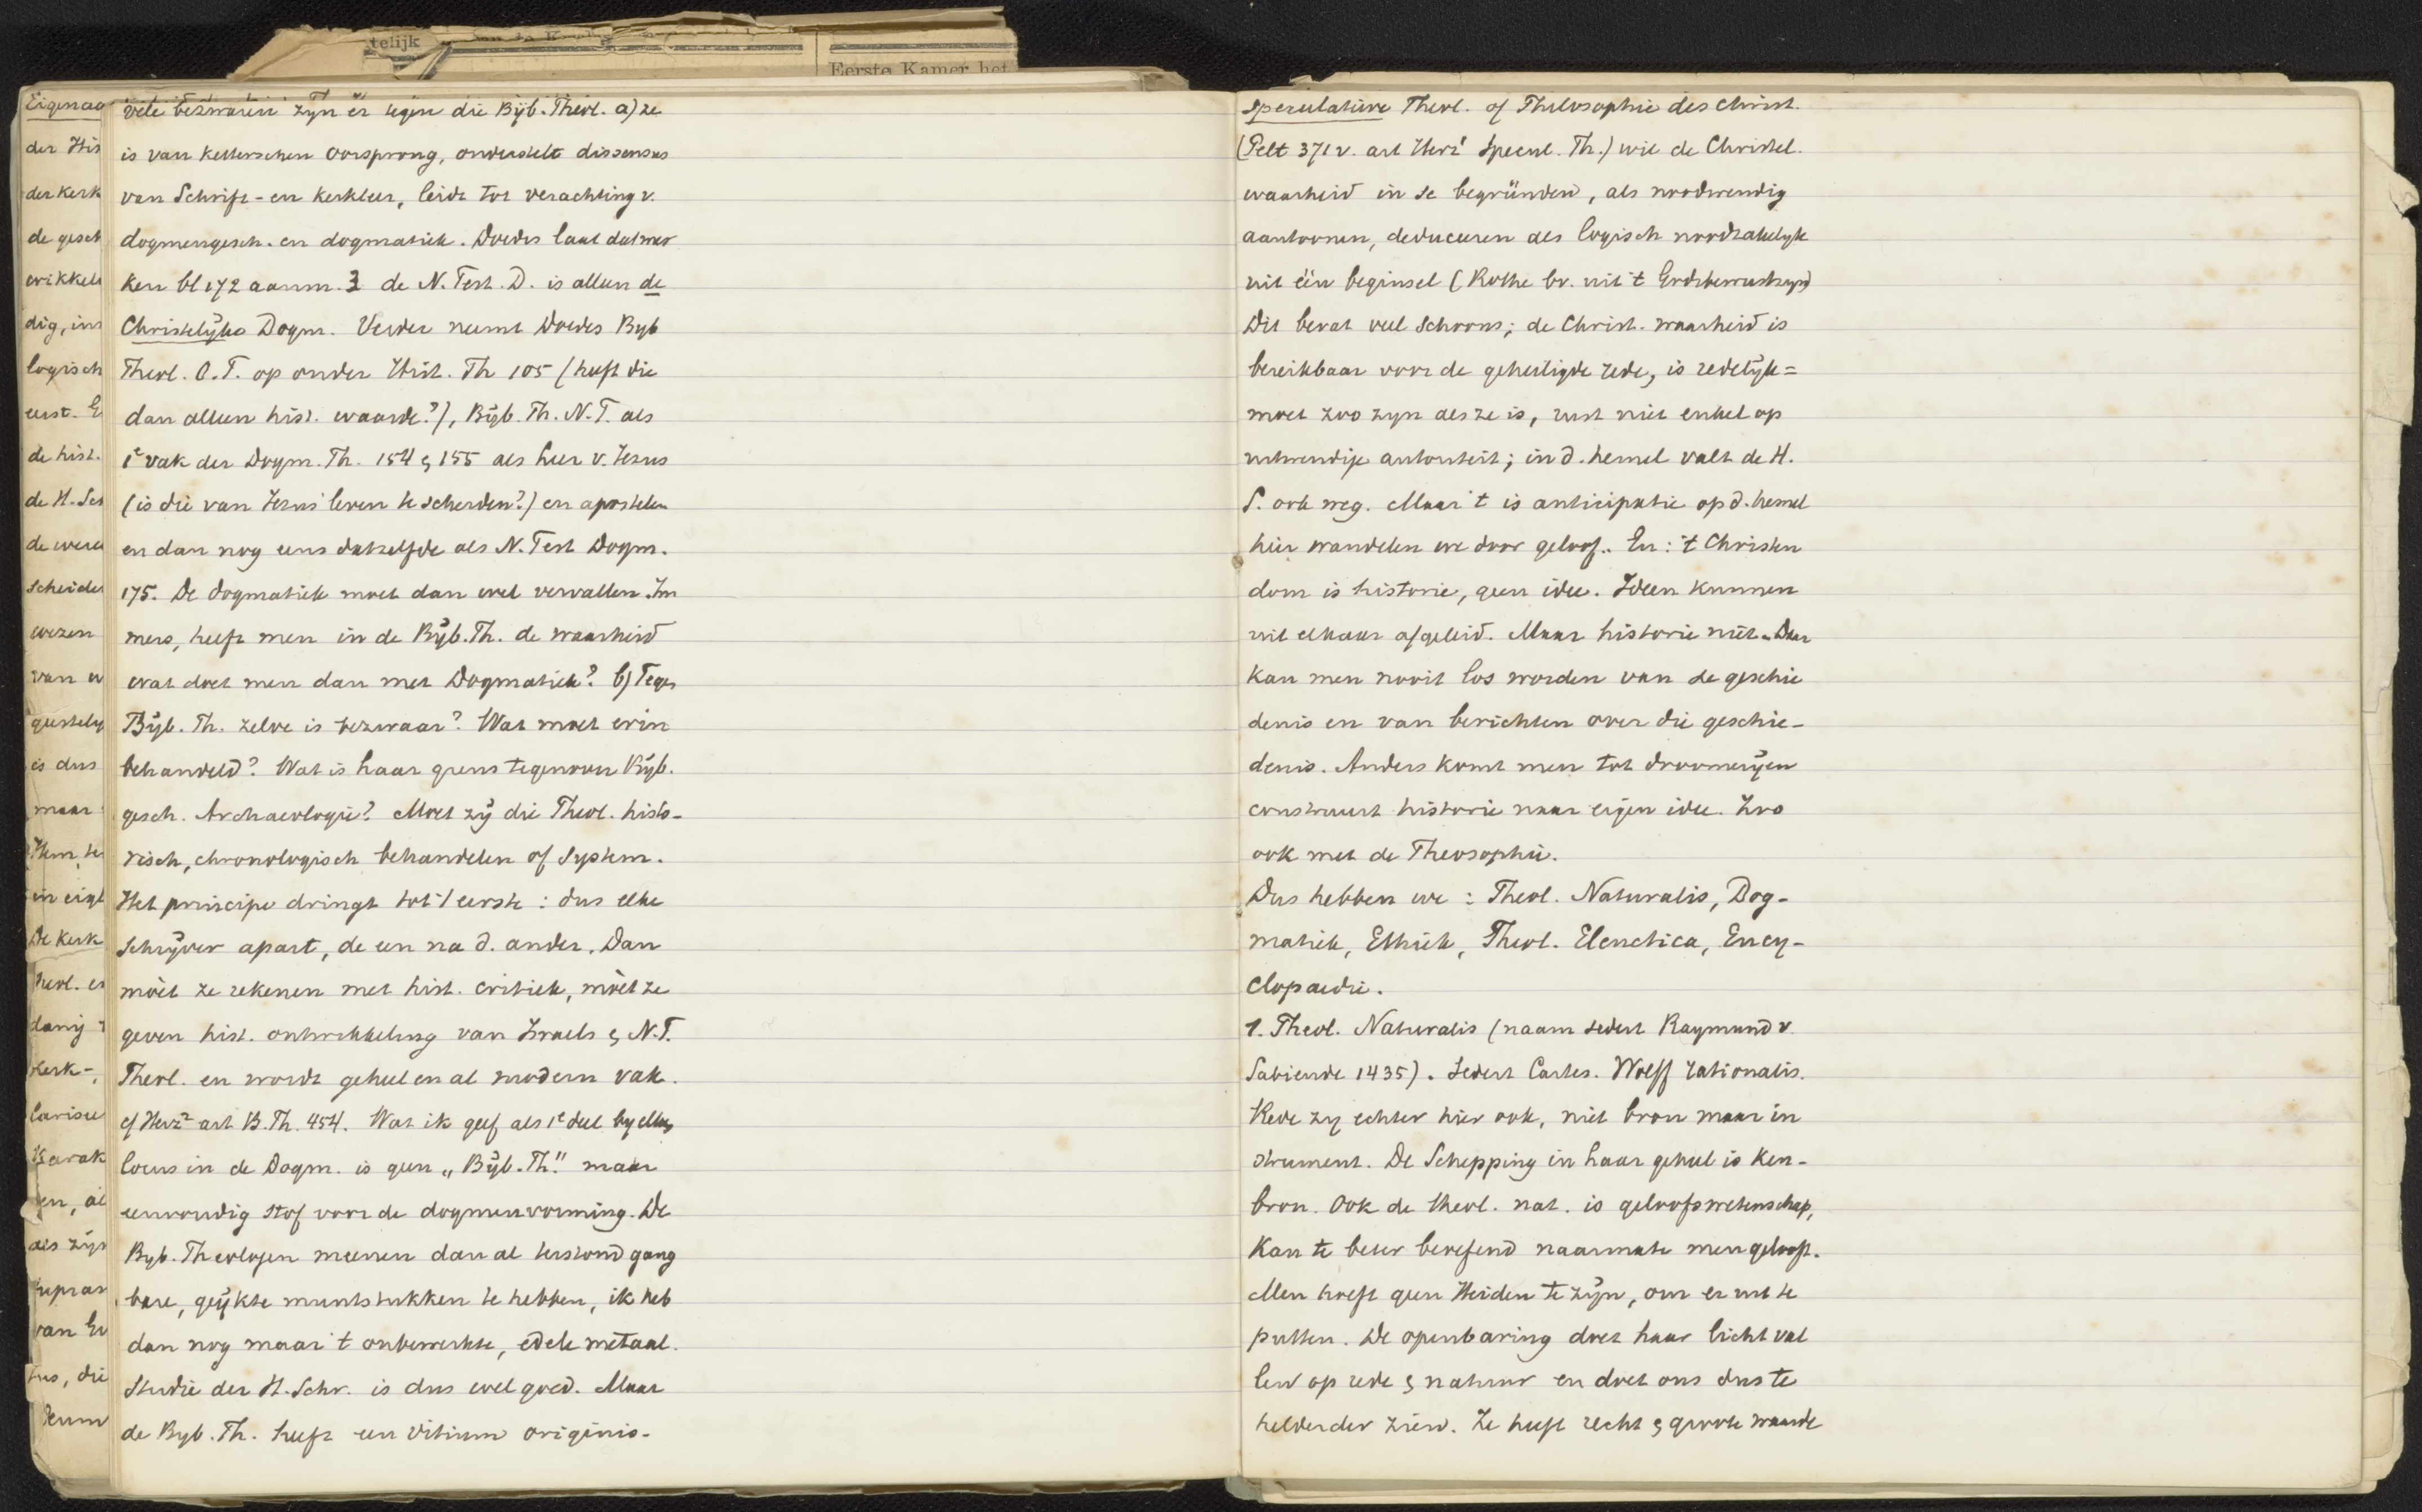 telijk
Eerste Kamer het
Eigenaa
der His
der kerk
de gesch
wikkel
dig, ins
logisch
eerst. E
de hist.
de H. Sch
de were
scheide
wezen
van
geestely
is dus
maar
Hem, te
De Kerk
heol. en
kerk-,
van
die
vele bezwaren zyn er tegen die Bijb. Theol. a) ze
is van ketterschen oorsprong, onderstelt dissensus
van Schrift- en kerkleer, leidt tot verachting v.
dogmengesch. en dogmatiek. Doedes laat dat mer
ken bl 172 aanm. 3 de N. Test. D. is alleen de
Christelijke Dogm. Verder neemt Doedes Byb
Theol. O.T. op onder Hist. Th 105 (heeft die
dan alleen hist. waarde?), Bijb. Th. N.T. als
1e vak der Dogm. Th. 154 & 155 als leer v. Jezus
(is die van Jezus' leven te scheiden?) en apostelen
en dan nog eens datzelfde als N. Test Dogm.
175. De dogmatiek moet dan wel vervallen. Im
mers, heeft men in de Bijb. Th. de waarheid
wat doet men dan met Dogmatiek? b) Tegen
Bijb. Th. zelve is bezwaar? Wat moet erin
behandeld? Wat is haar grens tegenover Bijb.
gesch. Archaeologie? Moet zij die Theol. histo-
risch, chronologisch behandelen of System.
Het principe dringt tot 't eerste: dus elke
Schrijver apart, de een na d. ander. Dan
mòet ze rekenen met hist. critiek, mòet ze
geven hist. ontwikkeling van Israels & N.T.
Theol. en wordt geheel en al modern vak.
cf Herz2 art B. Th. 454. Wat ik geef als 1e deel by elken
locus in de Dogm. is geen „Bijb. Th." maar
eenvoudig stof voor de dogmenvorming. De
Byb. Theologen meenen dan al terstond gang
bare, geijkte muntstukken te hebben, ik heb
dan nog maar 't onbewerkte, edele metaal.
Studie der H. Schr. is dus wel goed. Maar
de Byb. Th. heeft een vitium originis.
Speculatieve Theol. of Philosophie des Christ.
(Pelt 371 v. art Herz1 Specul. Th.) wil de Christel.
waarheid in se begründen, als noodwendig
aantoonen, deduceeren als logisch noodzakelyk
uit één beginsel (Rothe bv. uit 't Godsbewustzyn)
Dit bevat veel schoons; de Christ. waarheid is
bereikbaar voor de geheiligde rede, is redelijk =
moet zoo zyn als ze is, rust niet enkel op
uitwendige autoriteit; in d. hemel valt de H.
S. ook weg. Maar 't is anticipatie op d. hemel
hier wandelen we door geloof. En: 't Christen
dom is historie, geen idee. Ideen kunnen
uit elkaar afgeleid. Maar historie niet. Daar
kan men nooit los worden van de geschie
denis en van berichten over die geschie-
denis. Anders komt men tot droomerijen
construeert historie naar eigen idee. Zoo
ook met de Theosophie.
Dus hebben we: Theol. Naturalis, Dog-
matiek, Ethiek, Theol. Elenctica, Ency-
clopaedie.
1. Theol. Naturalis (naam sedert Raymund v.
Sabiende 1435). Sedert Cartes. Wolff rationalis.
Rede zy echter hier ook, niet bron maar in
strument. De Schepping in haar geheel is ken-
bron. Ook de theol. nat. is geloofswetenschap,
Kan te beter beoefend naarmate men gelooft.
Men hoeft geen Heiden te zijn, om er uit te
putten. De openbaring doet haar licht val
len op rede & natuur en doet ons dus te
helderder zien. Ze heeft recht & groote waarde